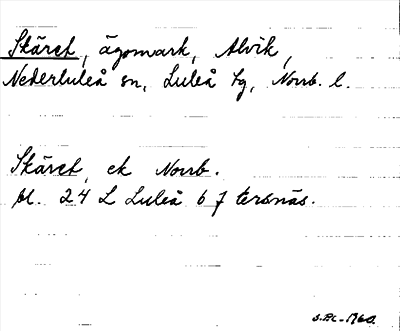 Skäret, ägomark, Alvik,
Nederluleå sn, Luleå tg, Norrb. l.
Skäret, ek Norrb.
bl. 24 L Luleå 6 f tersnäs.
1960.